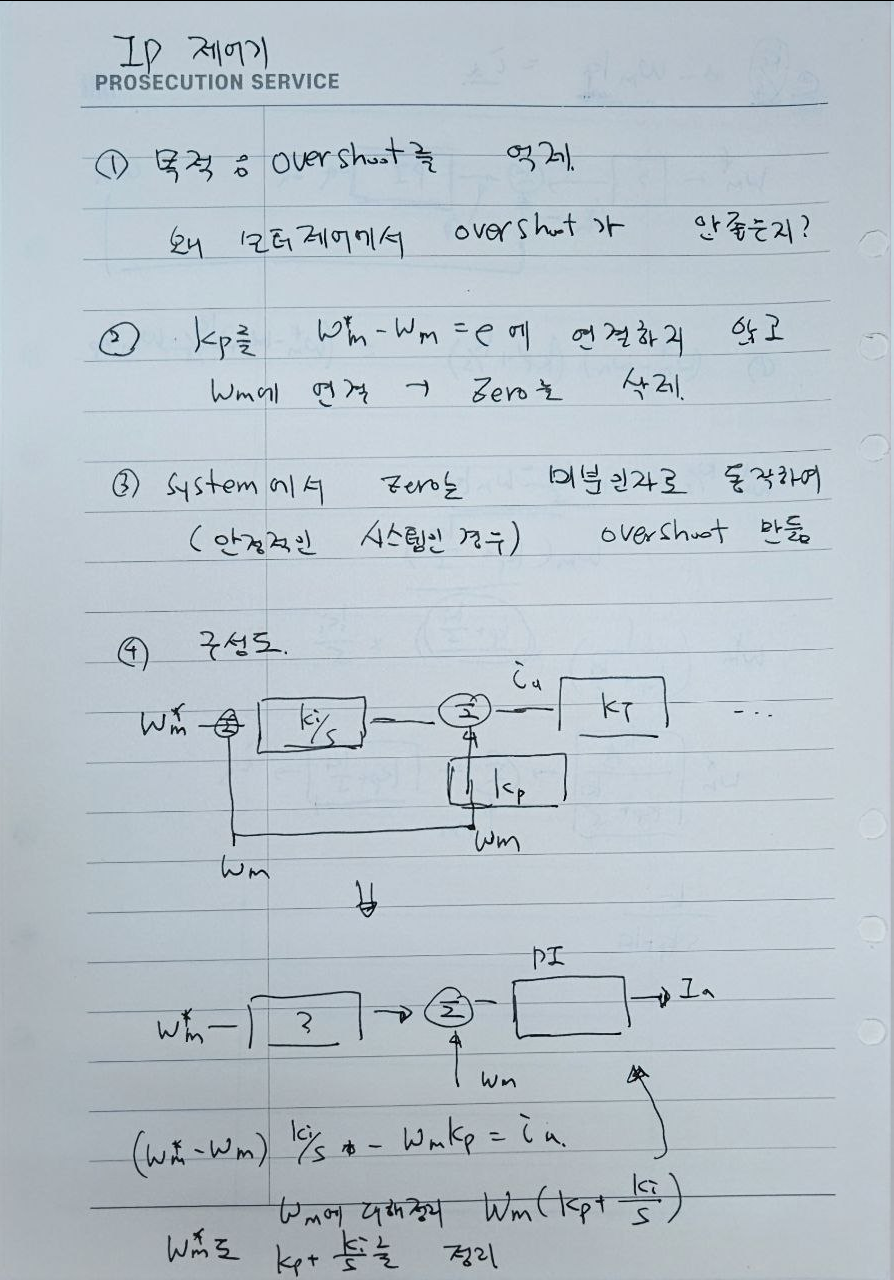 IP 제어기
PROSECUTION SERVICE
① 목적 : overshoot를 억제.
왜 모터제어에서 overshoot가 안좋은지?
② kp를 Wm* - Wm = e 에 연결하지 않고
Wm에 연결 → Zero를 삭제.
③ system에서 zero는 미분인자로 동작하여
(안정적인 시스템인 경우) overshoot 만듦
④ 구성도.
Wm* Σ ki/s Σ ia KT ...
kp
Wm
Wm
⇓
PI
Wm* ? → Σ → Ia
Wm
(Wm* - Wm) ki/s - Wm kp = ia.
Wm에 대해정리 Wm(kp + ki/s)
Wm*도 kp + ki/s 로 정리